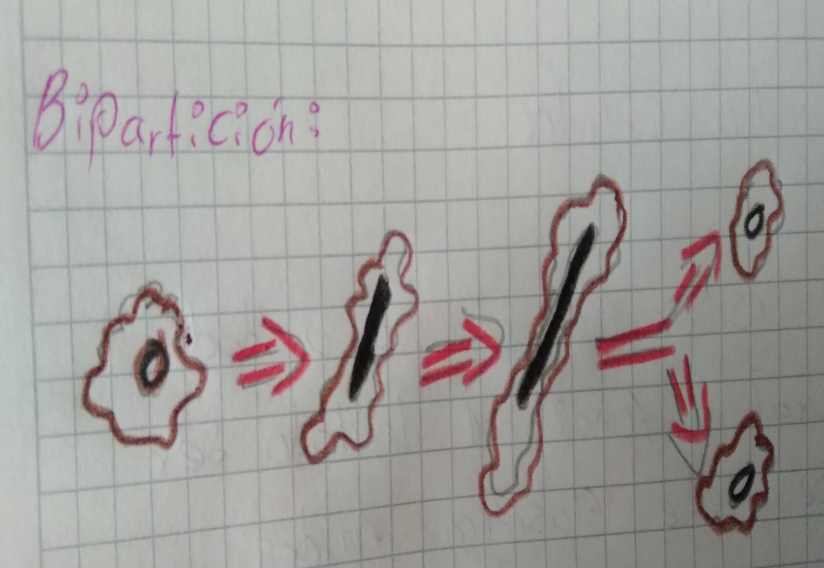 Bipartición: